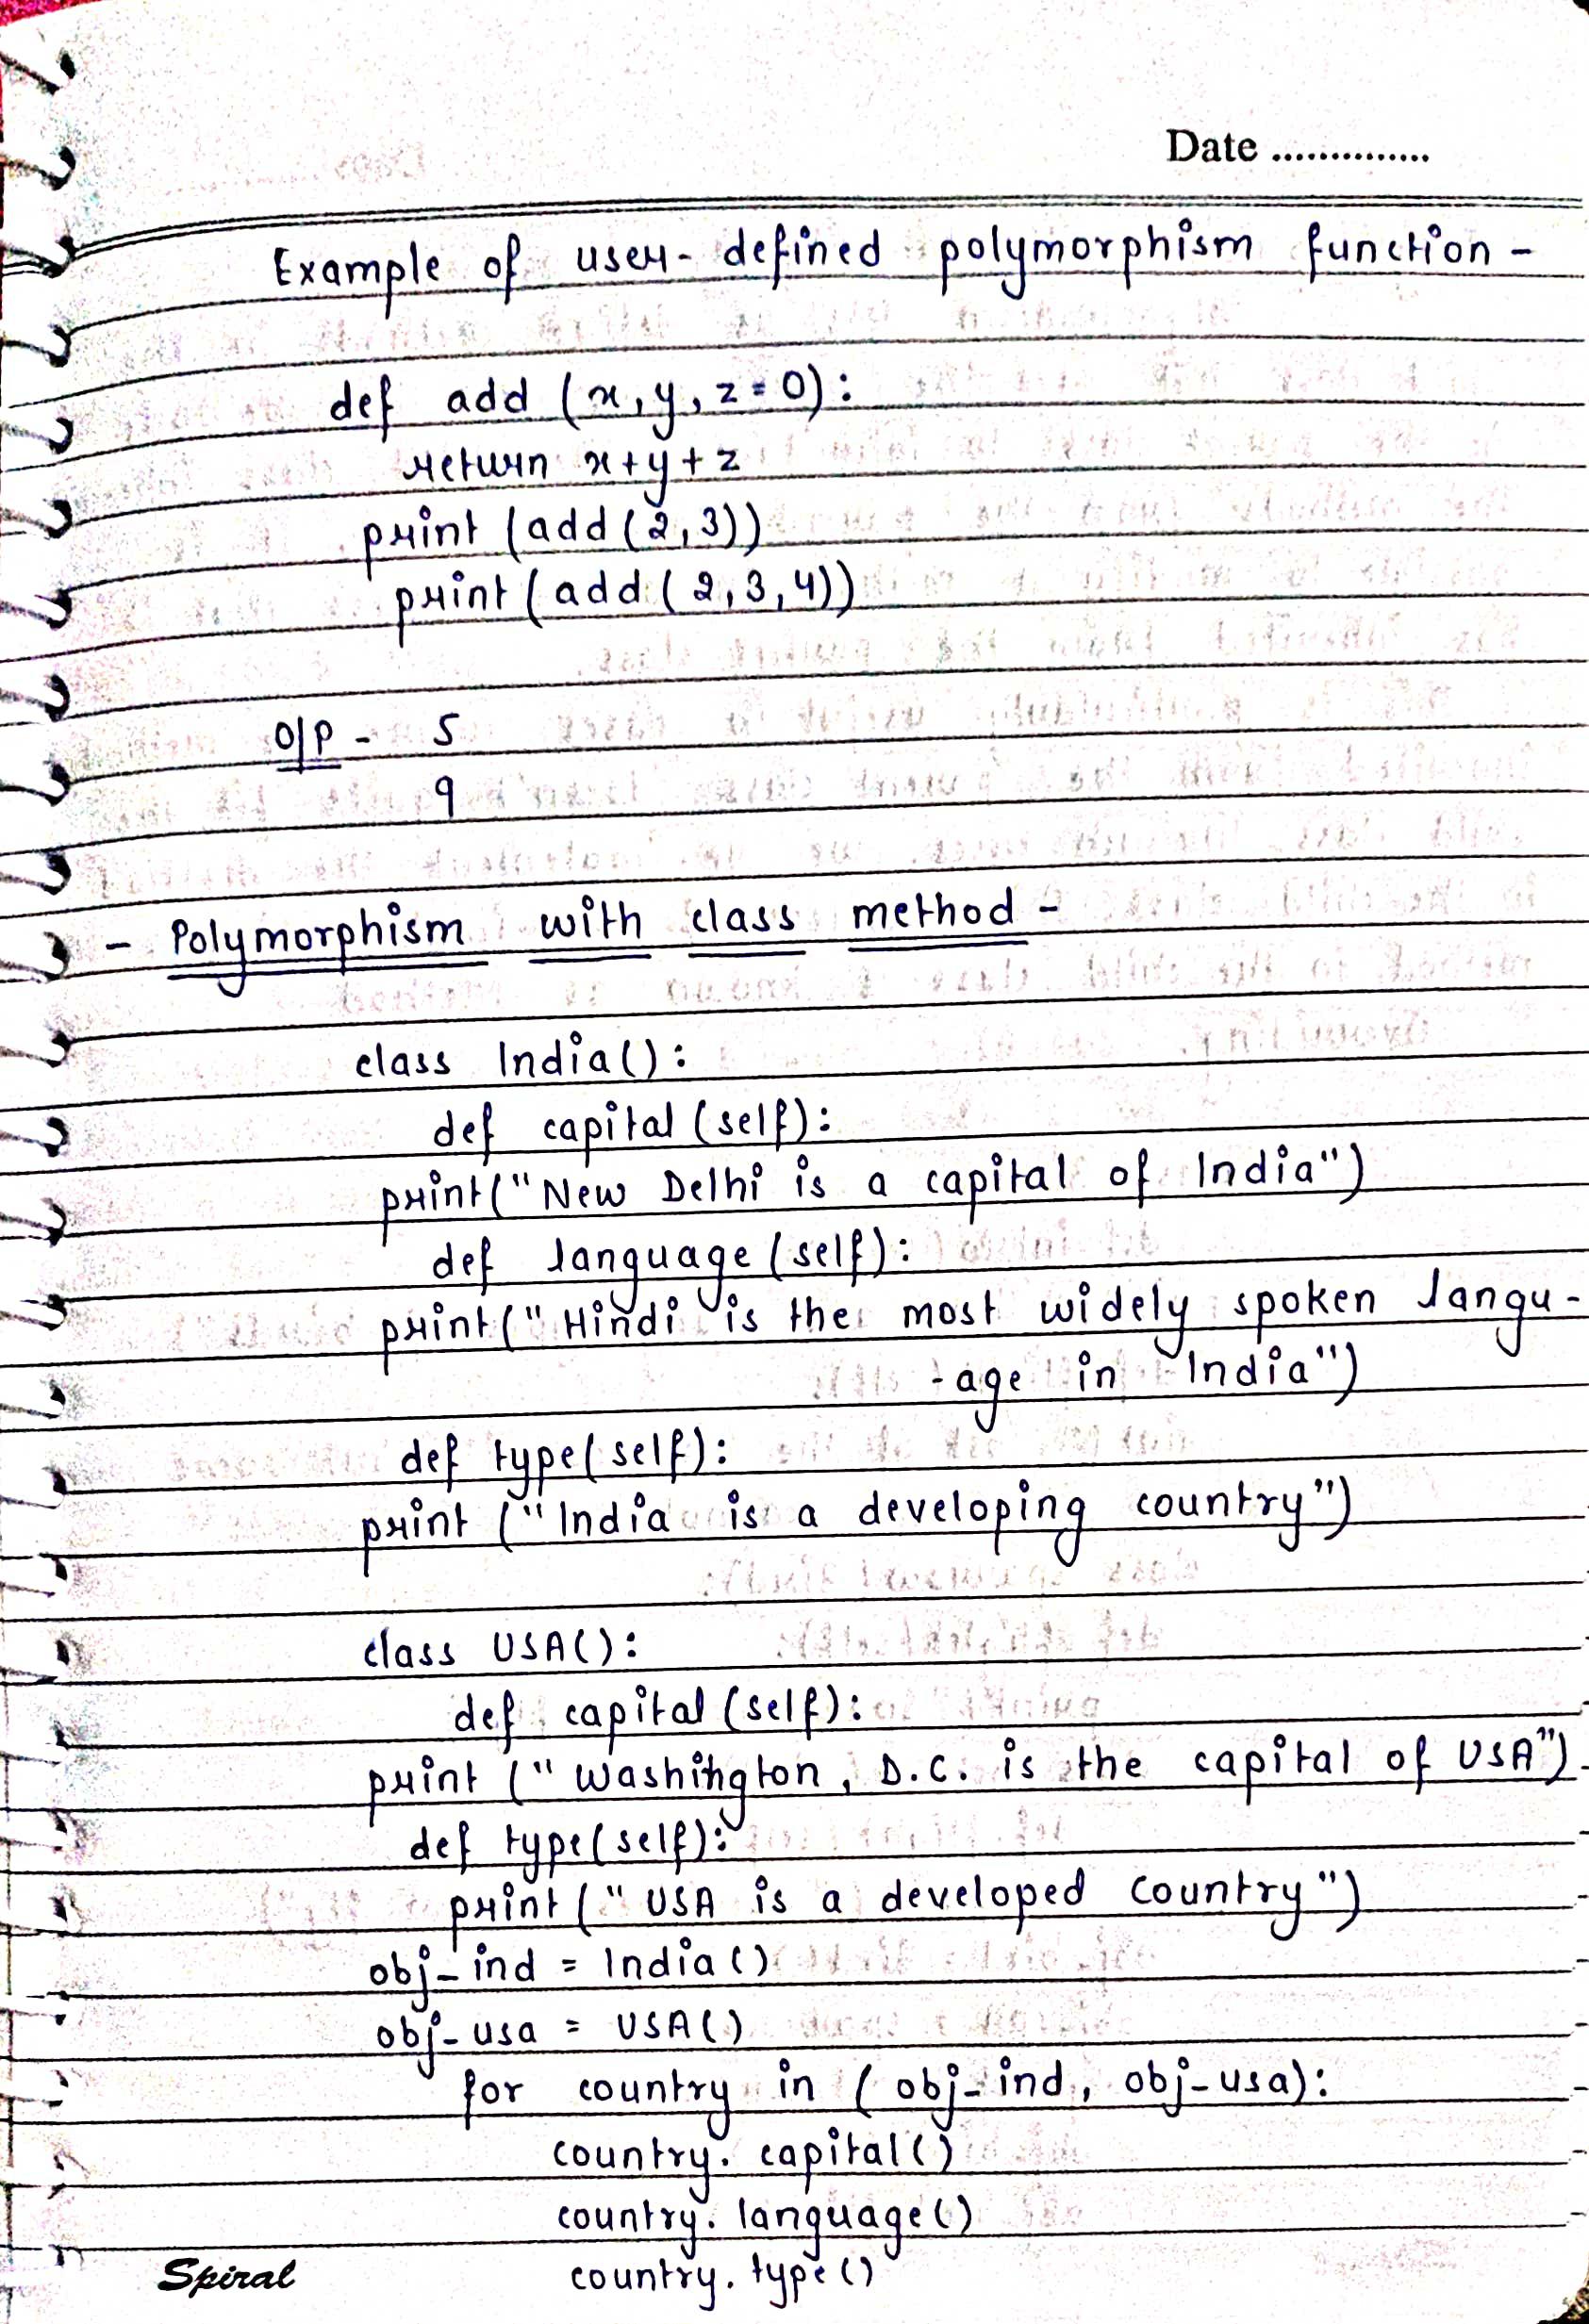 Date ...............
Example of user-defined polymorphism function -
def add (x, y, z=0):
return x+y+z
print (add (2,3))
print (add (2,3,4))
O/P - 5
9
- Polymorphism with class method -
class India():
def capital (self):
print("New Delhi is a capital of India")
def language (self):
print("Hindi is the most widely spoken langu-
-age in India")
def type(self):
print ("India is a developing country")
class USA():
def capital (self):
print ("Washington, D.C. is the capital of USA")
def type(self):
print ("USA is a developed country")
obj-ind = India ()
obj-usa = USA()
for country in (obj-ind, obj-usa):
country. capital()
country. language()
country. type()
Spiral